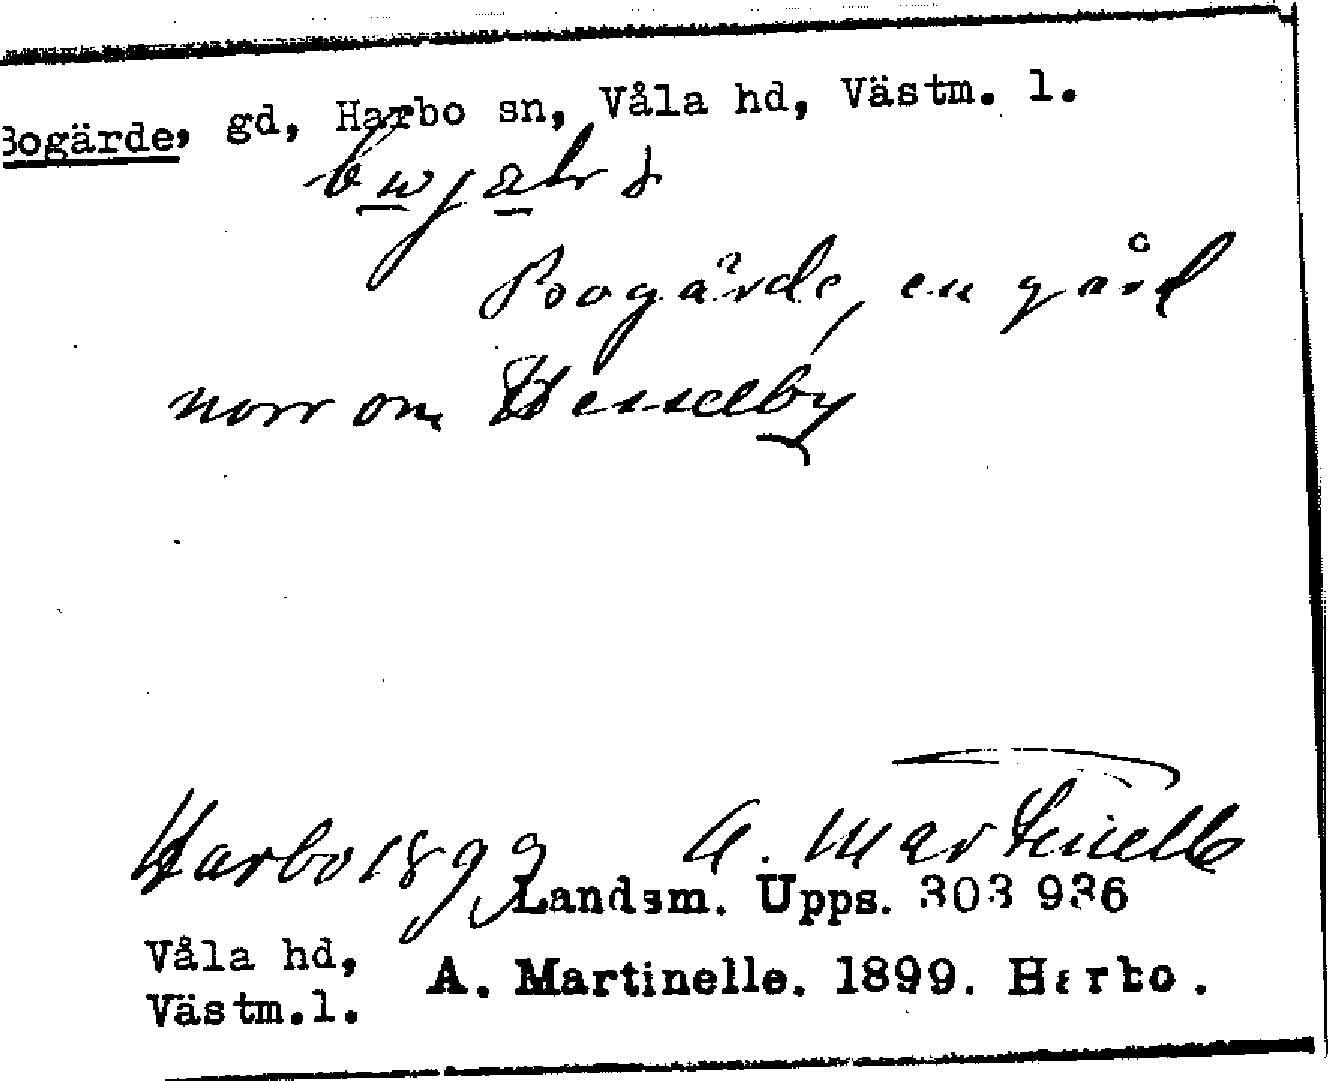 Bogärde, gd, Harbo sn, Våla hd, Västm. l.
Bogärde, en gård
norr om Hesselby
Harbo 1899 A. Martinelle
Landsm. Upps. 303 936
Våla hd,
Västm.l.
A. Martinelle. 1899. Harbo.